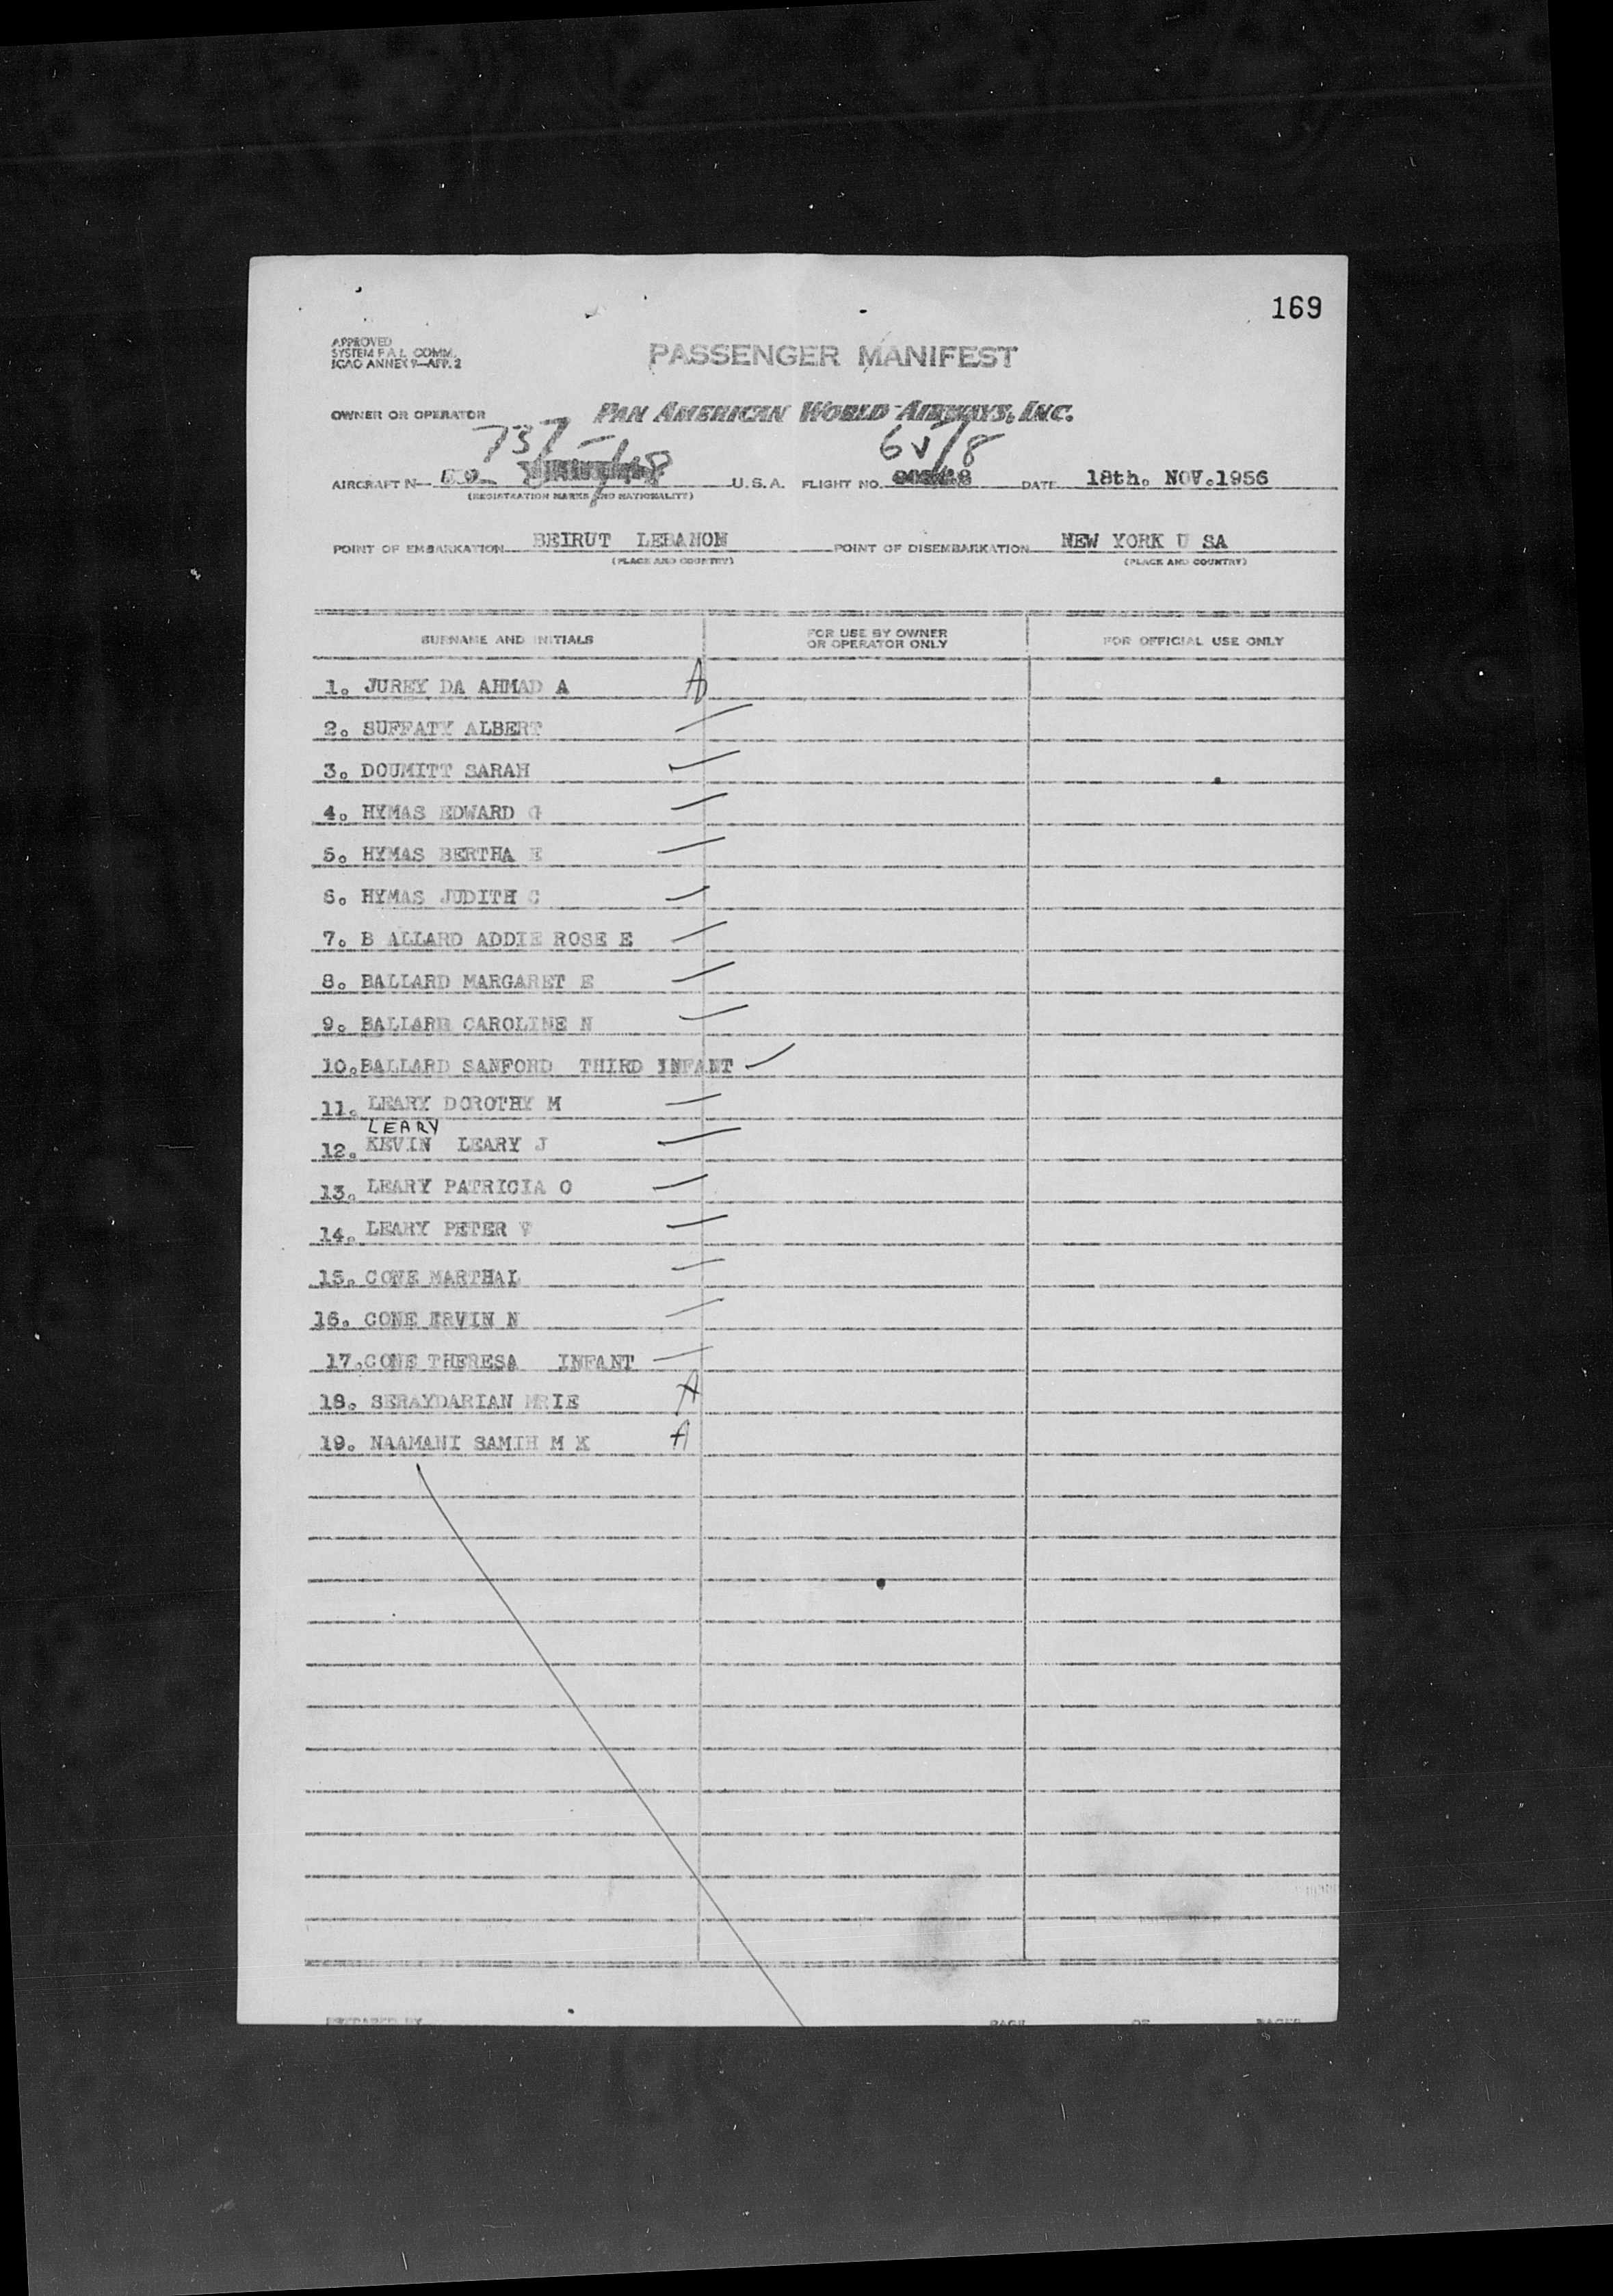 169
APPROVED
SYSTEM F.A.L. COMM.
ICAO ANNEX 9—APP. 2
PASSENGER MANIFEST
OWNER OR OPERATOR PAN AMERICAN WORLD AIRWAYS, INC.
737- 6V/8
AIRCRAFT N— U.S.A. FLIGHT NO. DATE 18th. NOV.1956
(REGISTRATION MARKS AND NATIONALITY)
POINT OF EMBARKATION BEIRUT LEBANON POINT OF DISEMBARKATION NEW YORK U SA
(PLACE AND COUNTRY) (PLACE AND COUNTRY)
SURNAME AND INITIALS FOR USE BY OWNER OR OPERATOR ONLY FOR OFFICIAL USE ONLY
1. JUREY DA AHMAD A A
2. SUFFATY ALBERT
3. DOUMITT SARAH
4. HYMAS EDWARD G
5. HYMAS BERTHA E
6. HYMAS JUDITH C
7. B ALLARD ADDIE ROSE E
8. BALLARD MARGARET E
9. BALLARD CAROLINE N
10. BALLARD SANFORD THIRD INFANT
11. LEARY DOROTHY M
LEARY
12. KEVIN LEARY J
13. LEARY PATRICIA O
14. LEARY PETER V
15. CONE MARTHAL
16. CONE ERVIN N
17. CONE THERESA INFANT
18. SERAYDARIAN MRIE A
19. NAAMANI SAMIH M K A
PREPARED BY PAGE OF PAGES